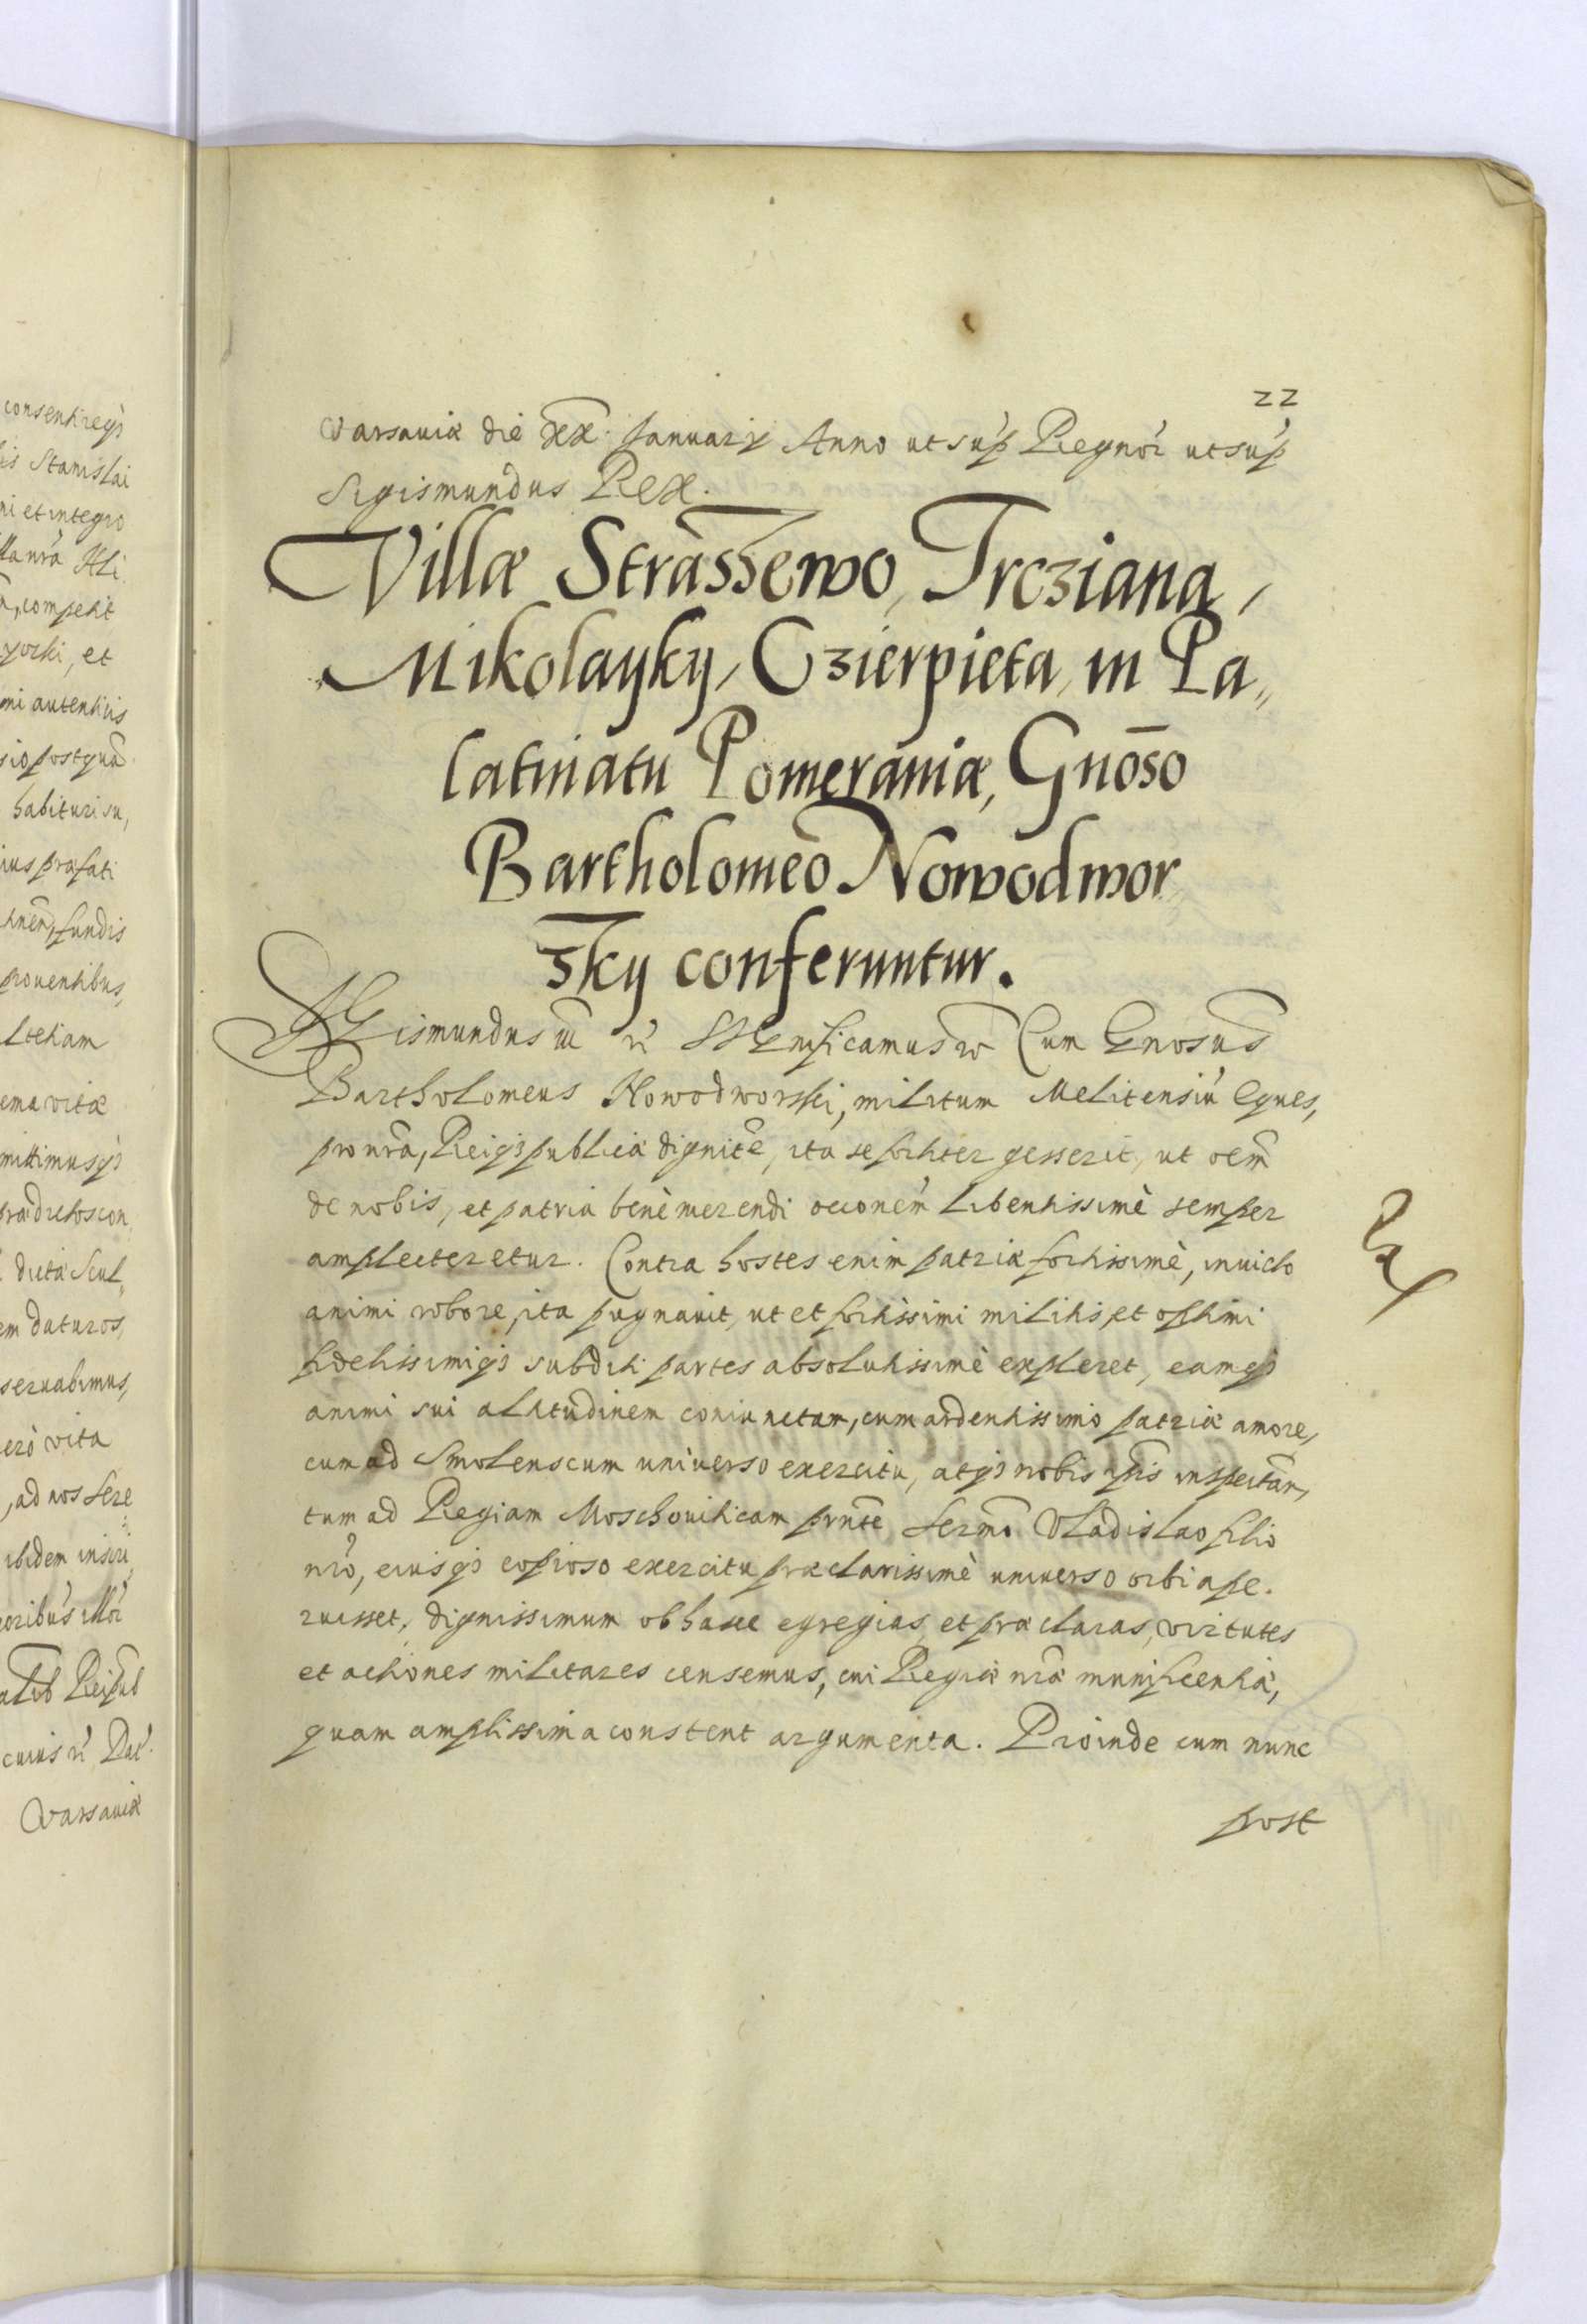 consentireqз
lis Stanislai
ni et integro
lla nrã Kli
competit
yorki, et
mi autenticis
sio postquã
habituri su,
ius præfati
fundis
prouentibus,
lteham
ema vitæ
mittimusqз
prædictos con
dicta Scul,
em daturos,
seruabimus,
erò vita
, ad nos sere
ibidem inscri
oribus illor
cuius rei Dat.
Varsauiæ
22
Varsauiæ die xx. Januarij Anno ut sup Regnor ut sup
Sigismundus Rex.
Villæ Strassewo, Trcziana,
Mikolayky, Czierpieta, in Pa„
latinatu Pomeraniæ, Gnõso
Bartholomeo Nowodwor
sky conferuntur.
Sigismundus iii rc Significamus rc Cum Gnosus
Bartholomeus Nowodworski, militum Melitensiũ Eques,
pro nrã, Reiqз publicæ dignitẽ, ita se fortiter gesserit, ut oem̃
de nobis, et patria benè merendi occonem̃ libentissimè semper
amplecteretur. Contra hostes enim patriæ fortissimè, inuicto
animi robore, ita pugnauit, ut et fortissimi militis, et optimi
fidelissimiqз subditi partes absolutissimè expleret, eamqз
animi sui altitudinem coniunctam, cum ardentissimo patriæ amore,
cum ad Smolenscum uniuerso exercitu, atqз nobis ipsis inspectan,
tum ad Regiam Moschouiticam pnte Sermo Vladislao filio
nrõ, eiusqз copioso exercitu præclarissimè uniuerso orbi ape.
ruisset, dignissimum ob hasce egregias, et præclaras, virtutes
et actiones militares censemus, cui Regiæ nræ munificentiæ,
quam amplissima constent argumenta. Proinde cum nunc
post